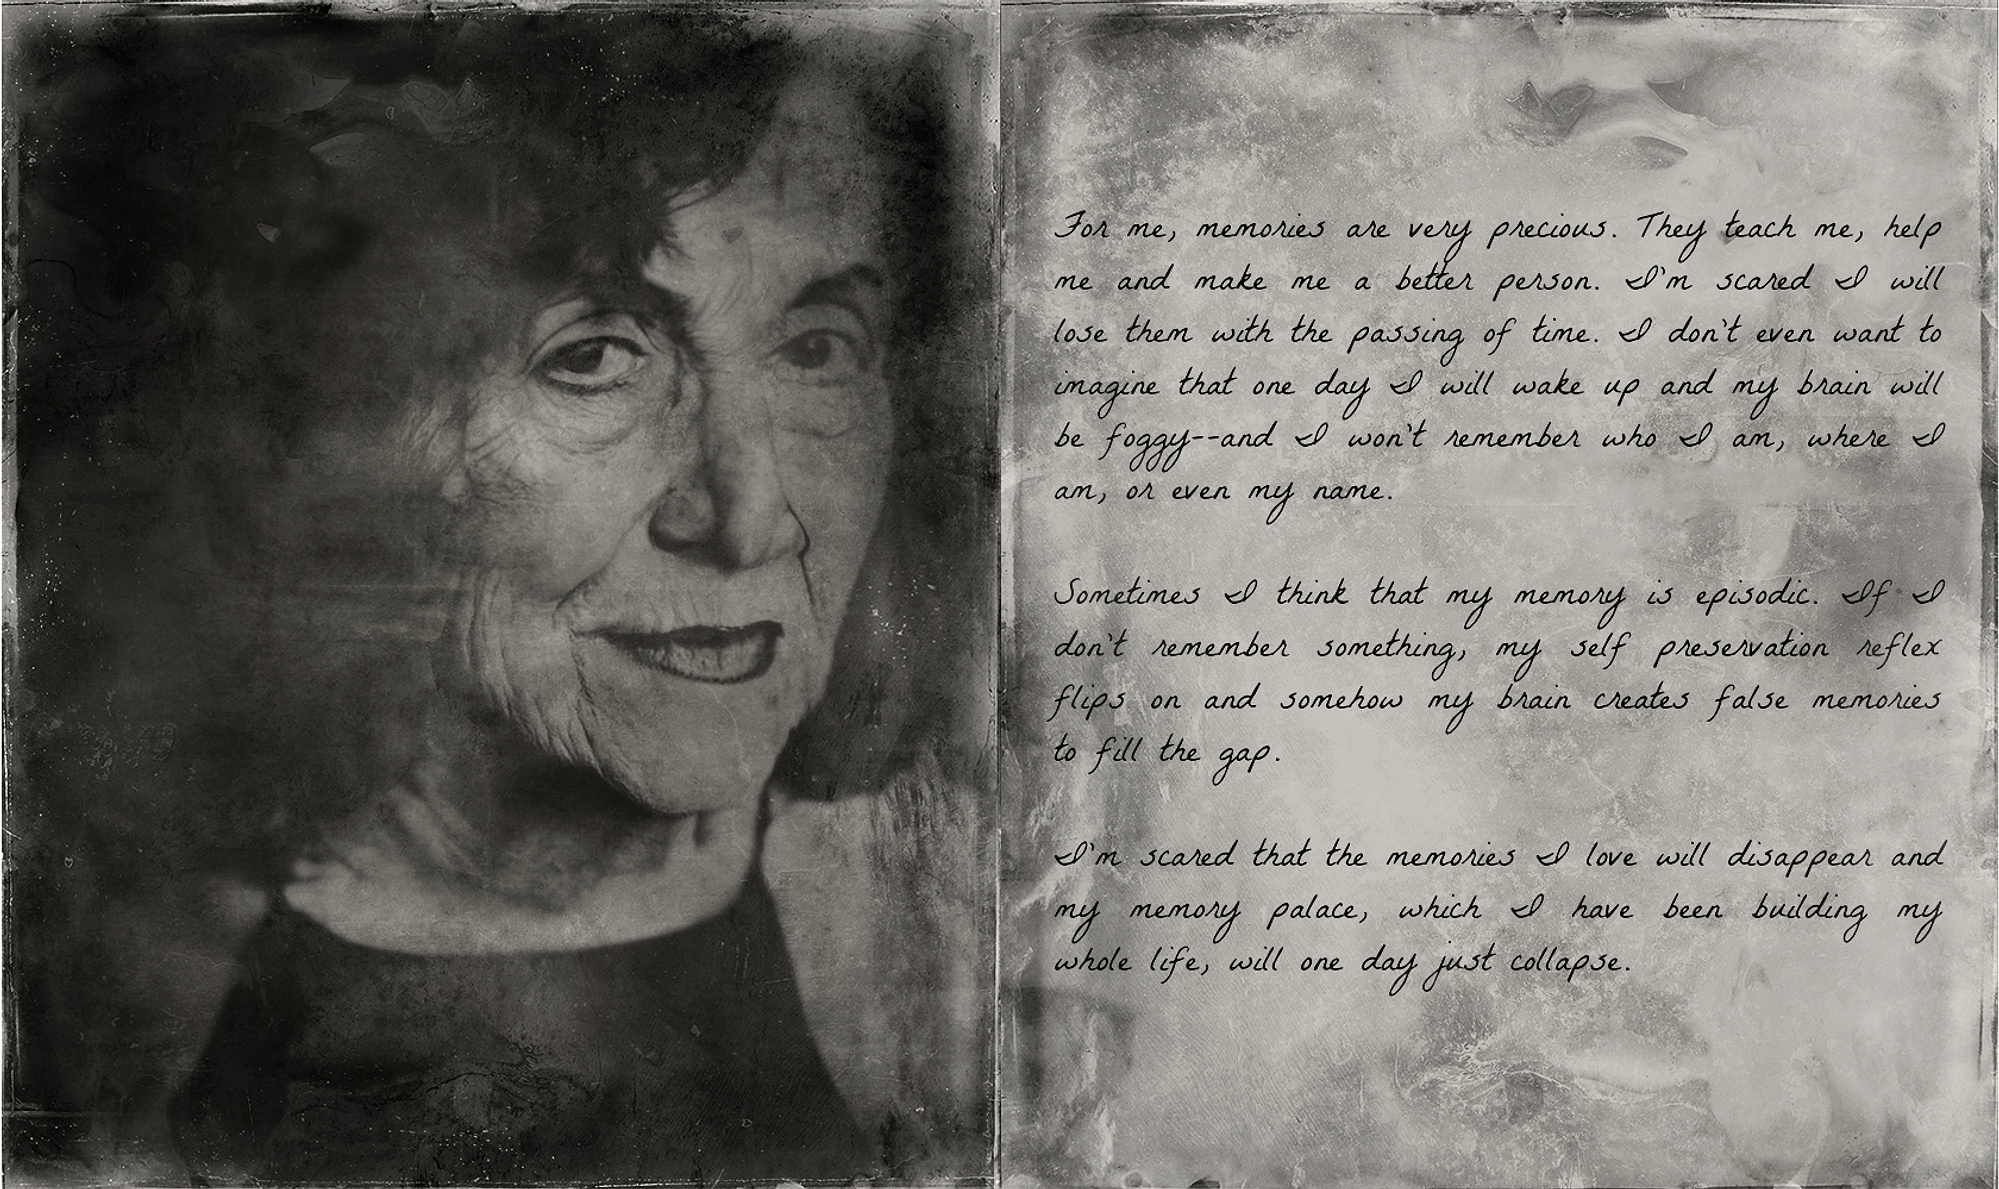 For me, memories are very precious. They teach me, help
me and make me a better person. I'm scared I will
lose them with the passing of time. I don't even want to
imagine that one day I will wake up and my brain will
be foggy--and I won't remember who I am, where I
am, or even my name.
Sometimes I think that my memory is episodic. If I
don't remember something, my self preservation reflex
flips on and somehow my brain creates false memories
to fill the gap.
I'm scared that the memories I love will disappear and
my memory palace, which I have been building my
whole life, will one day just collapse.